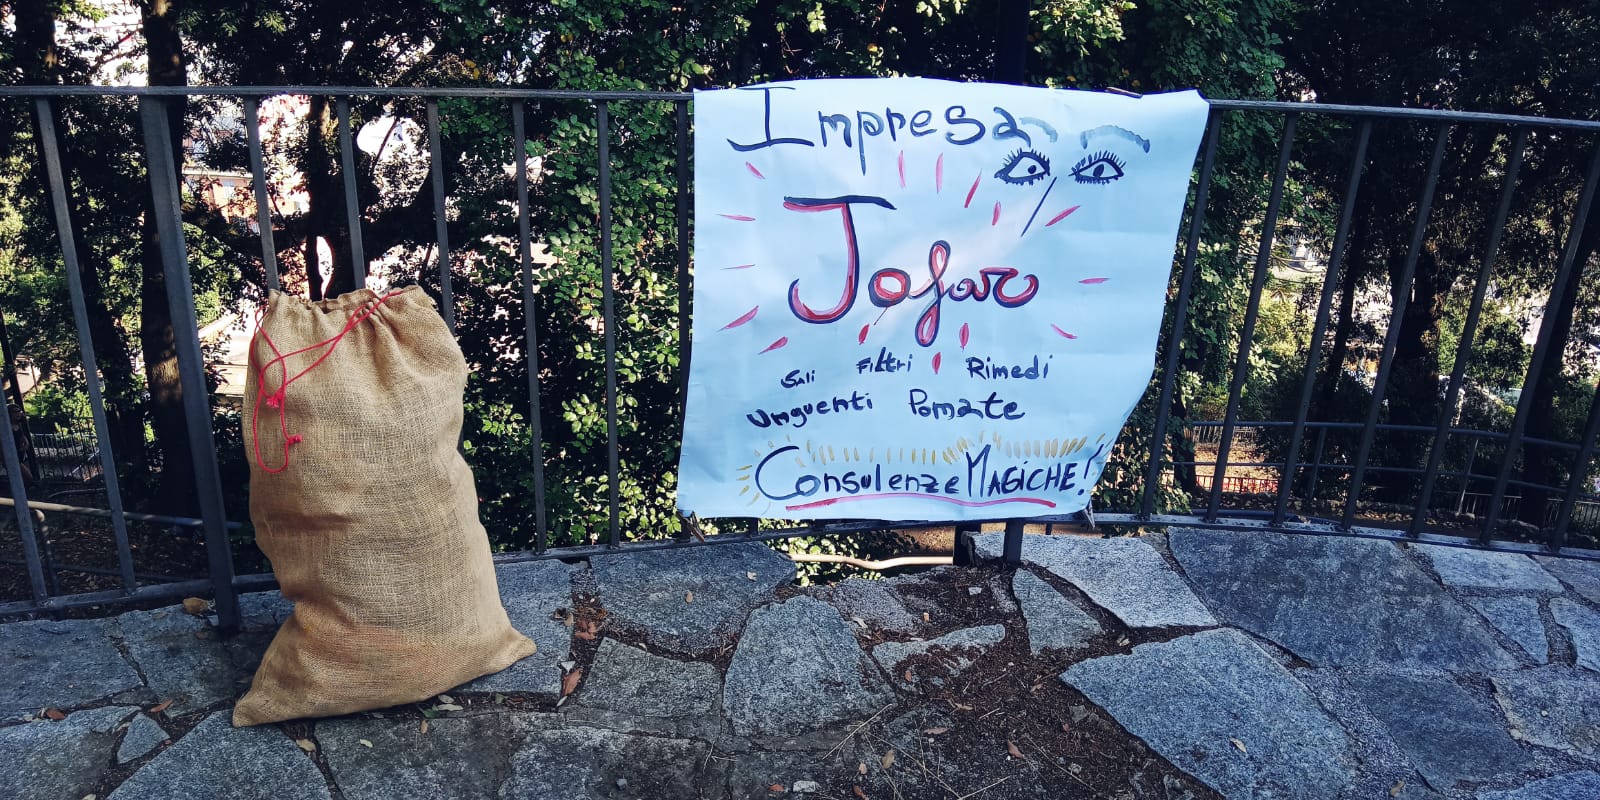 Impresa
Jafar
Sali Filtri Rimedi
Unguenti Pomate
Consulenze MAGICHE!